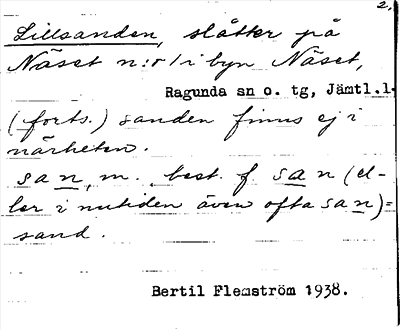 2.
Lillsanden, slåtter på
Näset n:o 1 i byn Näset,
Ragunda sn o. tg, Jämtl.l.
(forts.) sanden finns ej i
närheten.
san, m. best. f san (el-
ler i nutiden även ofta san)=
sand.
Bertil Flemström 1938.